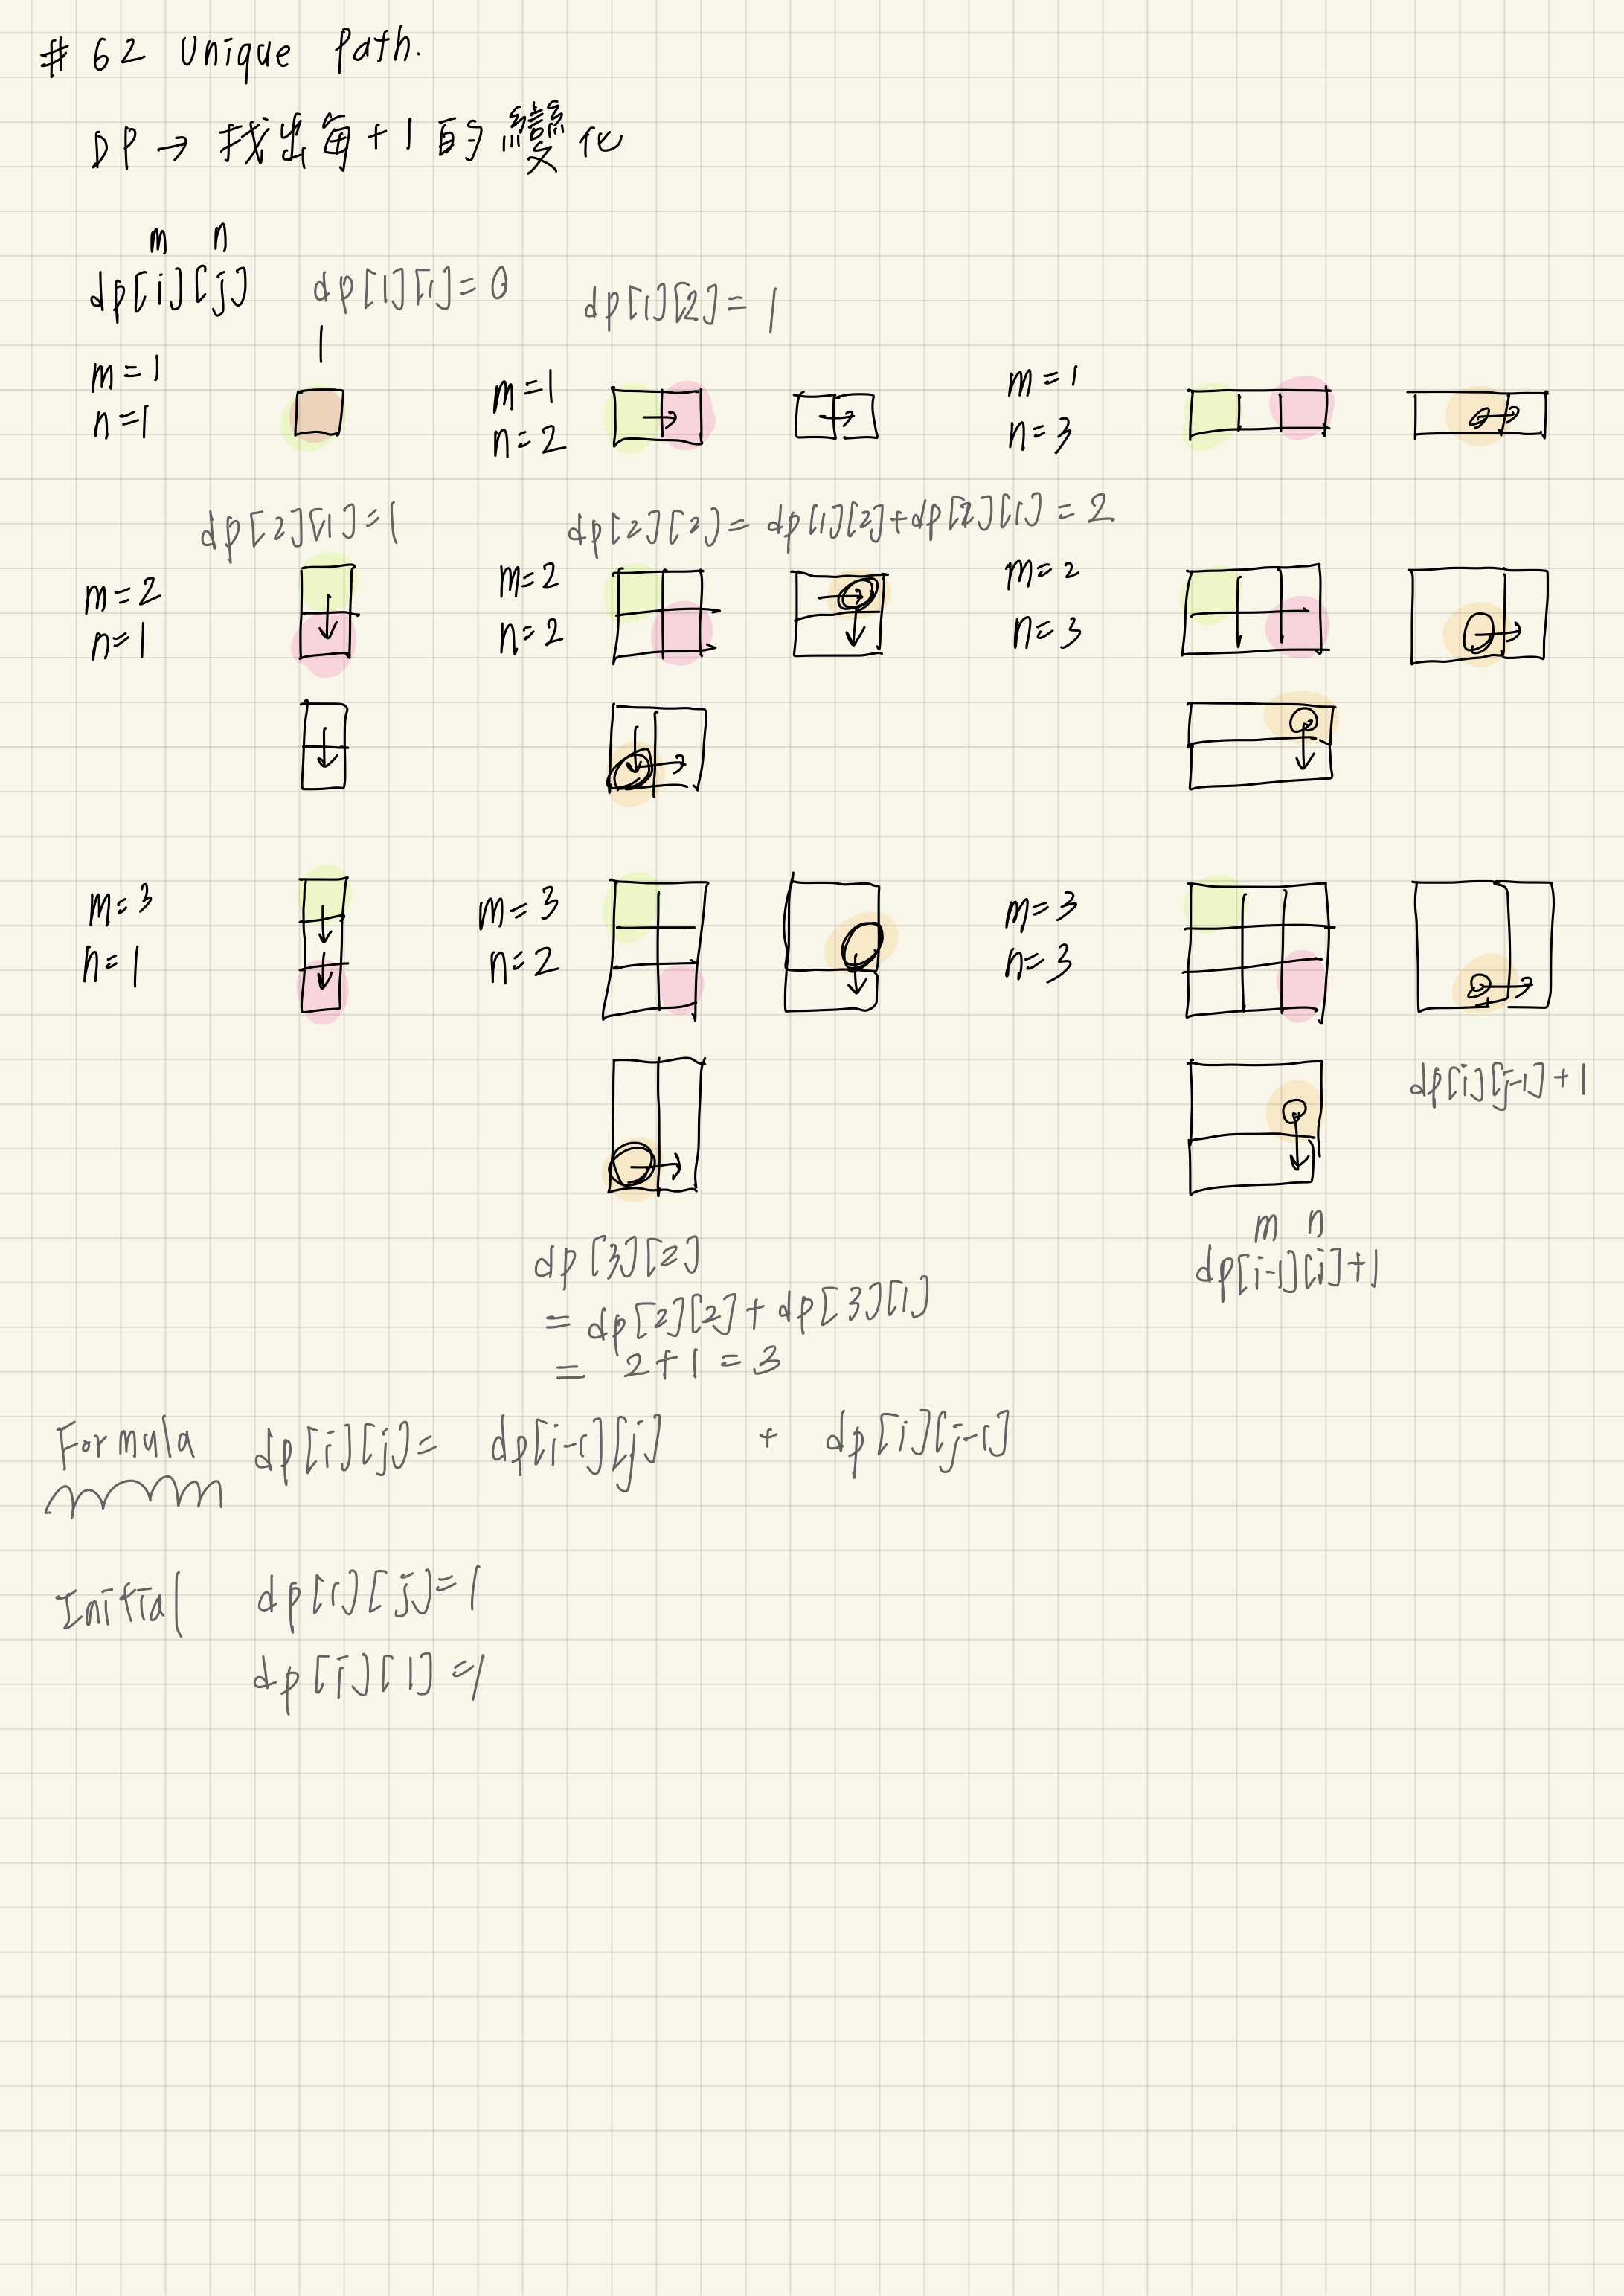 # 62 Unique Path.
DP → 找出每+1的變化
m n
dp[i][j]
dp[1][1]=0
dp[1][2]=1
1
m=1
n=1
m=1
n=2
m=1
n=3
dp[2][1]=1
dp[2][2]=dp[1][2]+dp[2][1]=2
m=2
n=1
m=2
n=2
m=2
n=3
m=3
n=1
m=3
n=2
m=3
n=3
dp[i][j-1]+1
m n
dp[i-1][i]+1
dp[3][2]
= dp[2][2]+dp[3][1]
= 2+1=3
Formula dp[i][j]= dp[i-1][j] + dp[i][j-1]
Initial dp[1][j]=1
dp[i][1]=1